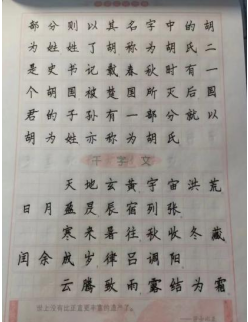 部分则以其名字中的胡
为姓姓了胡称为胡氏二
是史书记载春秋时有一
个胡国被楚国所灭后国
君的子孙有一部分就以
胡为姓亦称为胡氏
千字文
天地玄黄宇宙洪荒
日月盈昃辰宿列张
寒来暑往秋收冬藏
闰余成岁律吕调阳
云腾致雨露结为霜